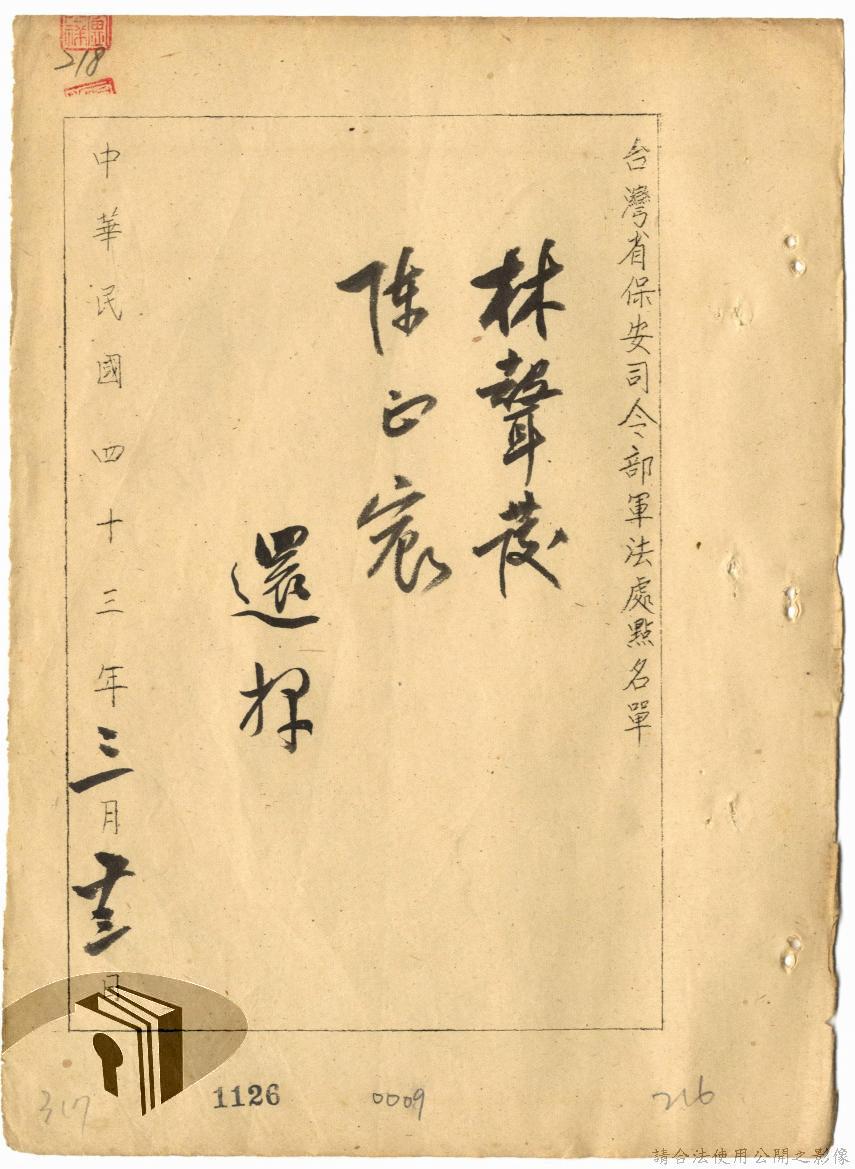 218
台灣省保安司令部軍法處點名單
林聲發
陳正宸
還押
中華民國四十三年三月十三日
317
1126
0009
216
請合法使用公開之影像